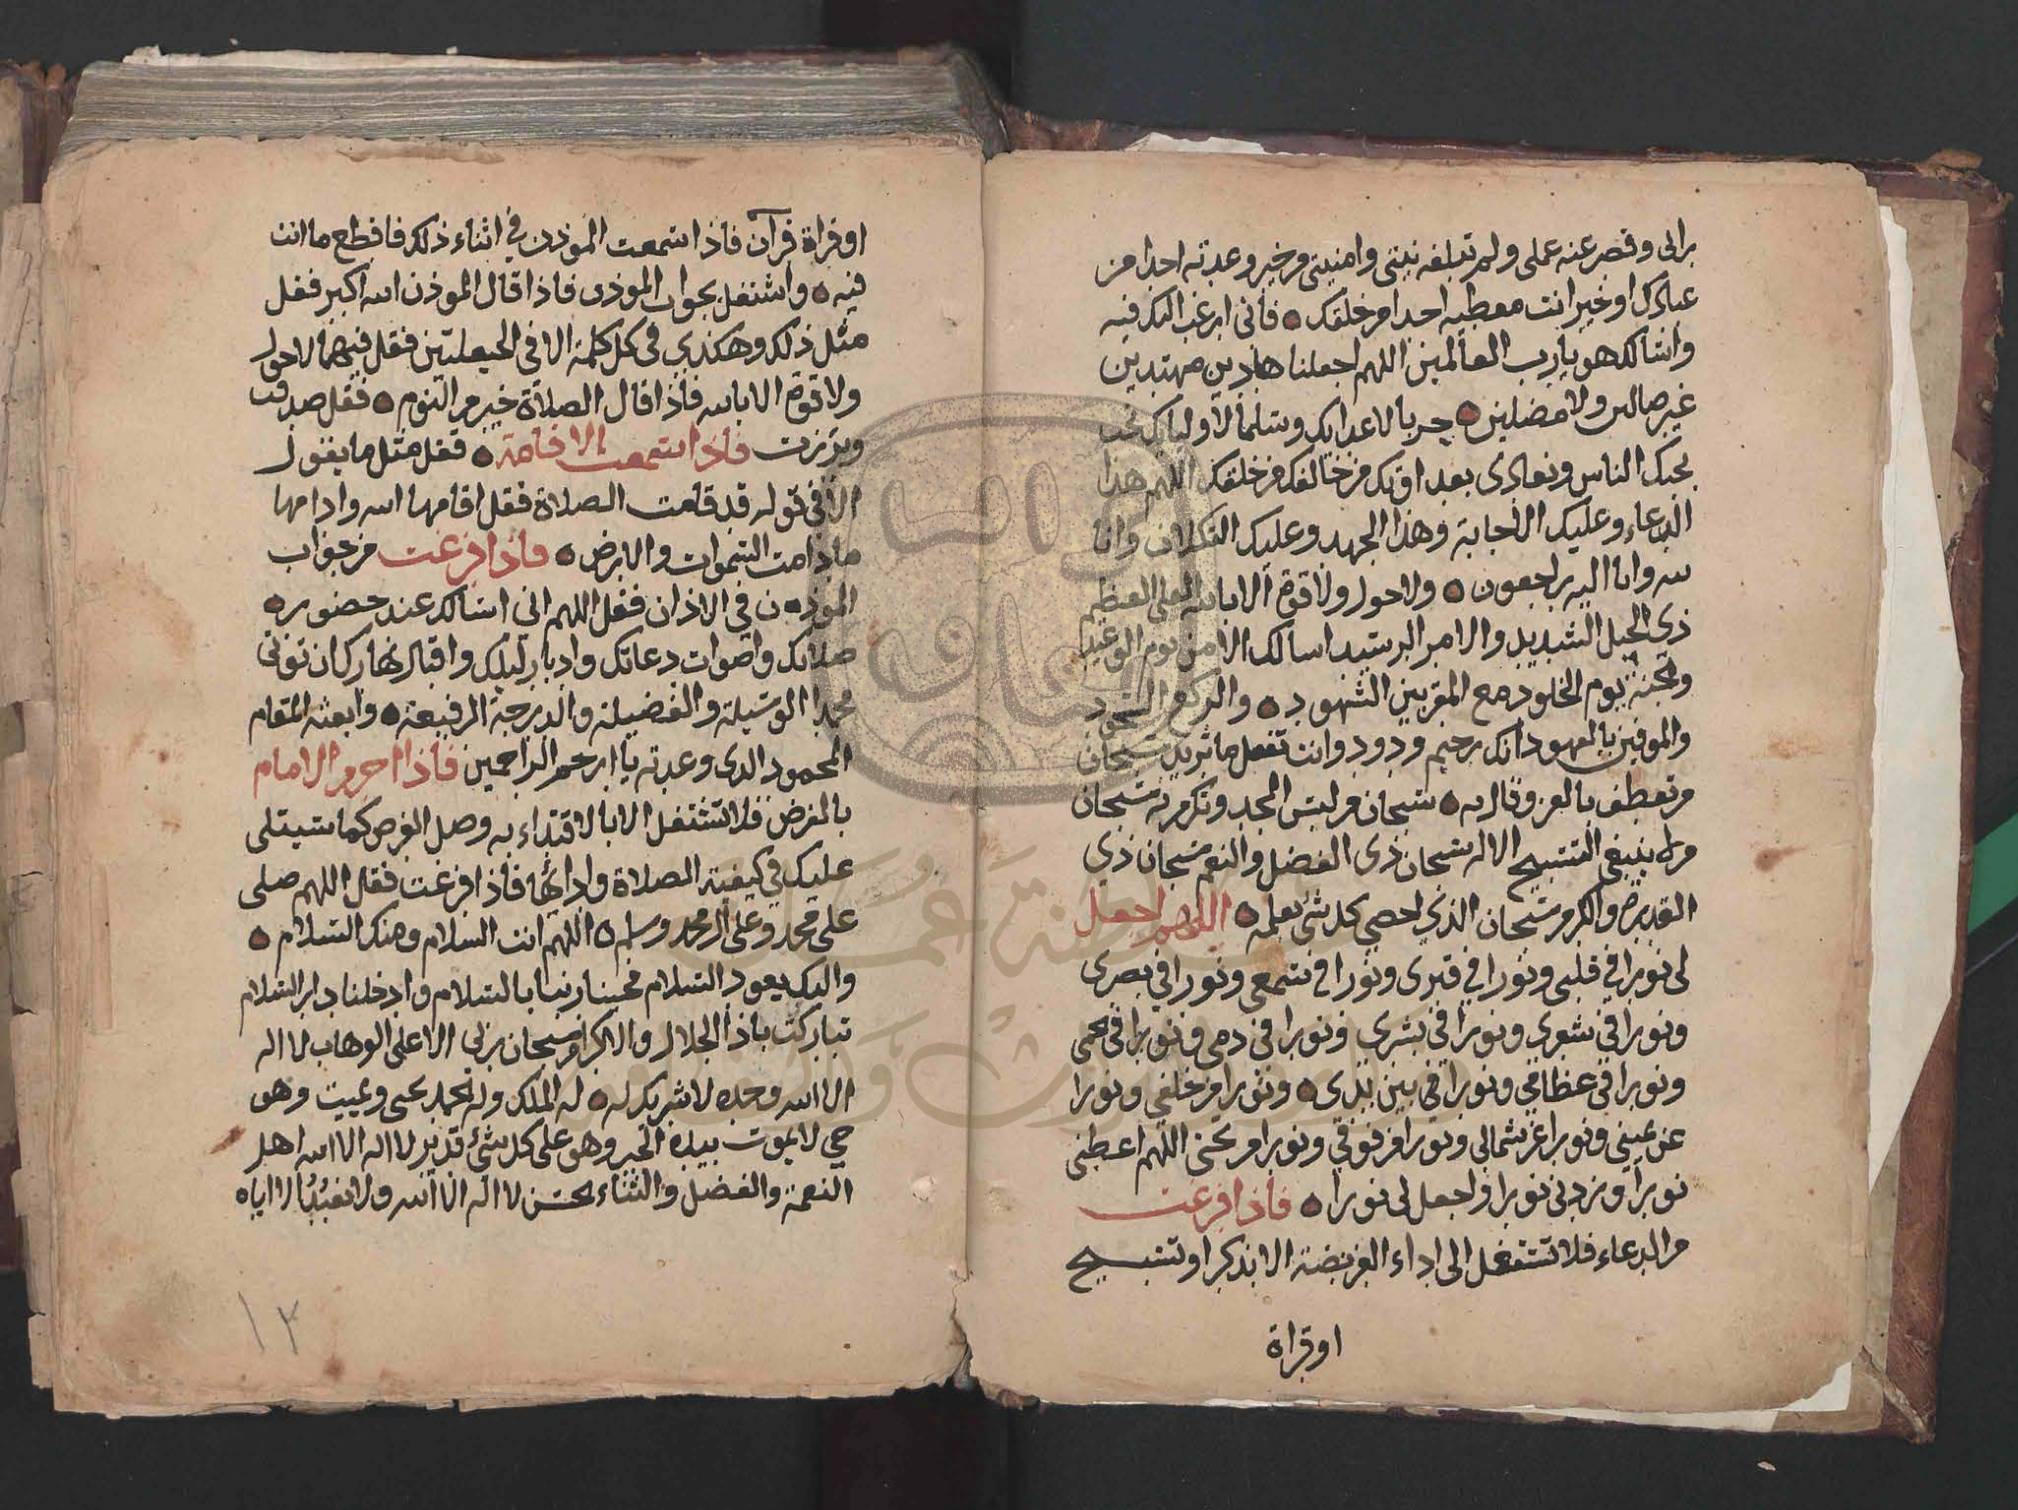 راى وقصر عنه عملى ولم تبلغه نيتى وامنيتى من خير وعدته احدا من
عبادك او خير انت معطيه احدا من خلقك فانى ارغب اليك فيه
واسالكهو يا رب العالمين اللهم اجعلنا هادين مهتدين
غير ضالين ولا مضلين حربا لاعدايك وسلما لاوليايك نحب
بحبك الناس ونعادى بعداوتك من خالفك من خلقك اللهم هذا
الدعاء وعليك الاجابة وهذا الجهد وعليك التكلان وانا
لله وانا اليه راجعون ولا حول ولا قوة الا بالله العلى العظيم
ذى الحبل الشديد والامر الرشيد اسالك الامن يوم الوعيد
والجنة يوم الخلود مع المقربين الشهود والركع السجود
والموفين بالعهود انك رحيم ودود وانت تفعل ما تريد سبحان
من تعطف بالعز وقال به سبحان من لبس المجد وتكرم به سبحان
من لا ينبغى التسبيح الا له سبحان ذى الفضل والنعم سبحان ذي
القدرة والكرم سبحان الذي احصي كل شئ بعلمه اللهم اجعل
لى نورا في قلبى ونورا في قبرى ونورا فى سمعى ونورا في بصرى
ونورا في شعري ونورا في بشرى ونورا فى دمى ونورا في لحمى
ونورا في عظامي ونورا في بين يدى ونورا من خلفي ونورا
عن يميني ونورا عن شمالى ونورا من فوقي ونورا من تحتى اللهم اعطنى
نورا وزدنى نورا واجعل لى نورا فاذا فرغت
من الدعاء فلا تشتغل الى اداء الفريضة الا بذكر او تسبيح
او قراة
او قراة قرآن فاذا سمعت الموذن في اثناء ذلك فاقطع ما انت
فيه واشتغل بجواب الموذن فاذا قال الموذن الله اكبر فقل
مثل ذلك وهكذي فى كل كلمة الا في الحيعلتين فقل فيهما لا حول
ولا قوة الا بالله فاذا قال الصلاة خير من النوم فقل صدقت
وبررت فاذا سمعت الاقامة فقل مثل ما يقول
الا فى قوله قد قامت الصلاة فقل اقامها الله وادامها
ما دامت السموات والارض فاذا فرغت من جواب
الموذن في الاذان فقل اللهم انى اسالك عند حضور
صلاتك واصوات دعاتك وادبار ليلك واقبال نهارك ان توتى
محمدا الوسيلة والفضيلة والدرجة الرفيعة وابعثه المقام
المحمود الذى وعدته يا ارحم الراحمين فاذا احرم الامام
بالفرض فلا تشتغل الا بالاقتداء به وصل الفرض كما سيتلى
عليك في كيفية الصلاة وادابها فاذا فرغت فقل اللهم صلى
على محمد وعلى ال محمد وسلم اللهم انت السلام ومنك السلام
واليك يعود السلام فحينا ربنا بالسلام وادخلنا دار السلام
تباركت ياذا الجلال والاكرام سبحان ربي الاعلى الوهاب لا اله
الا الله وحده لا شريك له له الملك وله الحمد يحى ويميت وهو
حي لا يموت بيده الخير وهو على كل شئ قدير لا اله الا الله اهل
النعمة والفضل والثناء الحسن لا اله الا الله ولا نعبد الا اياه
١٢